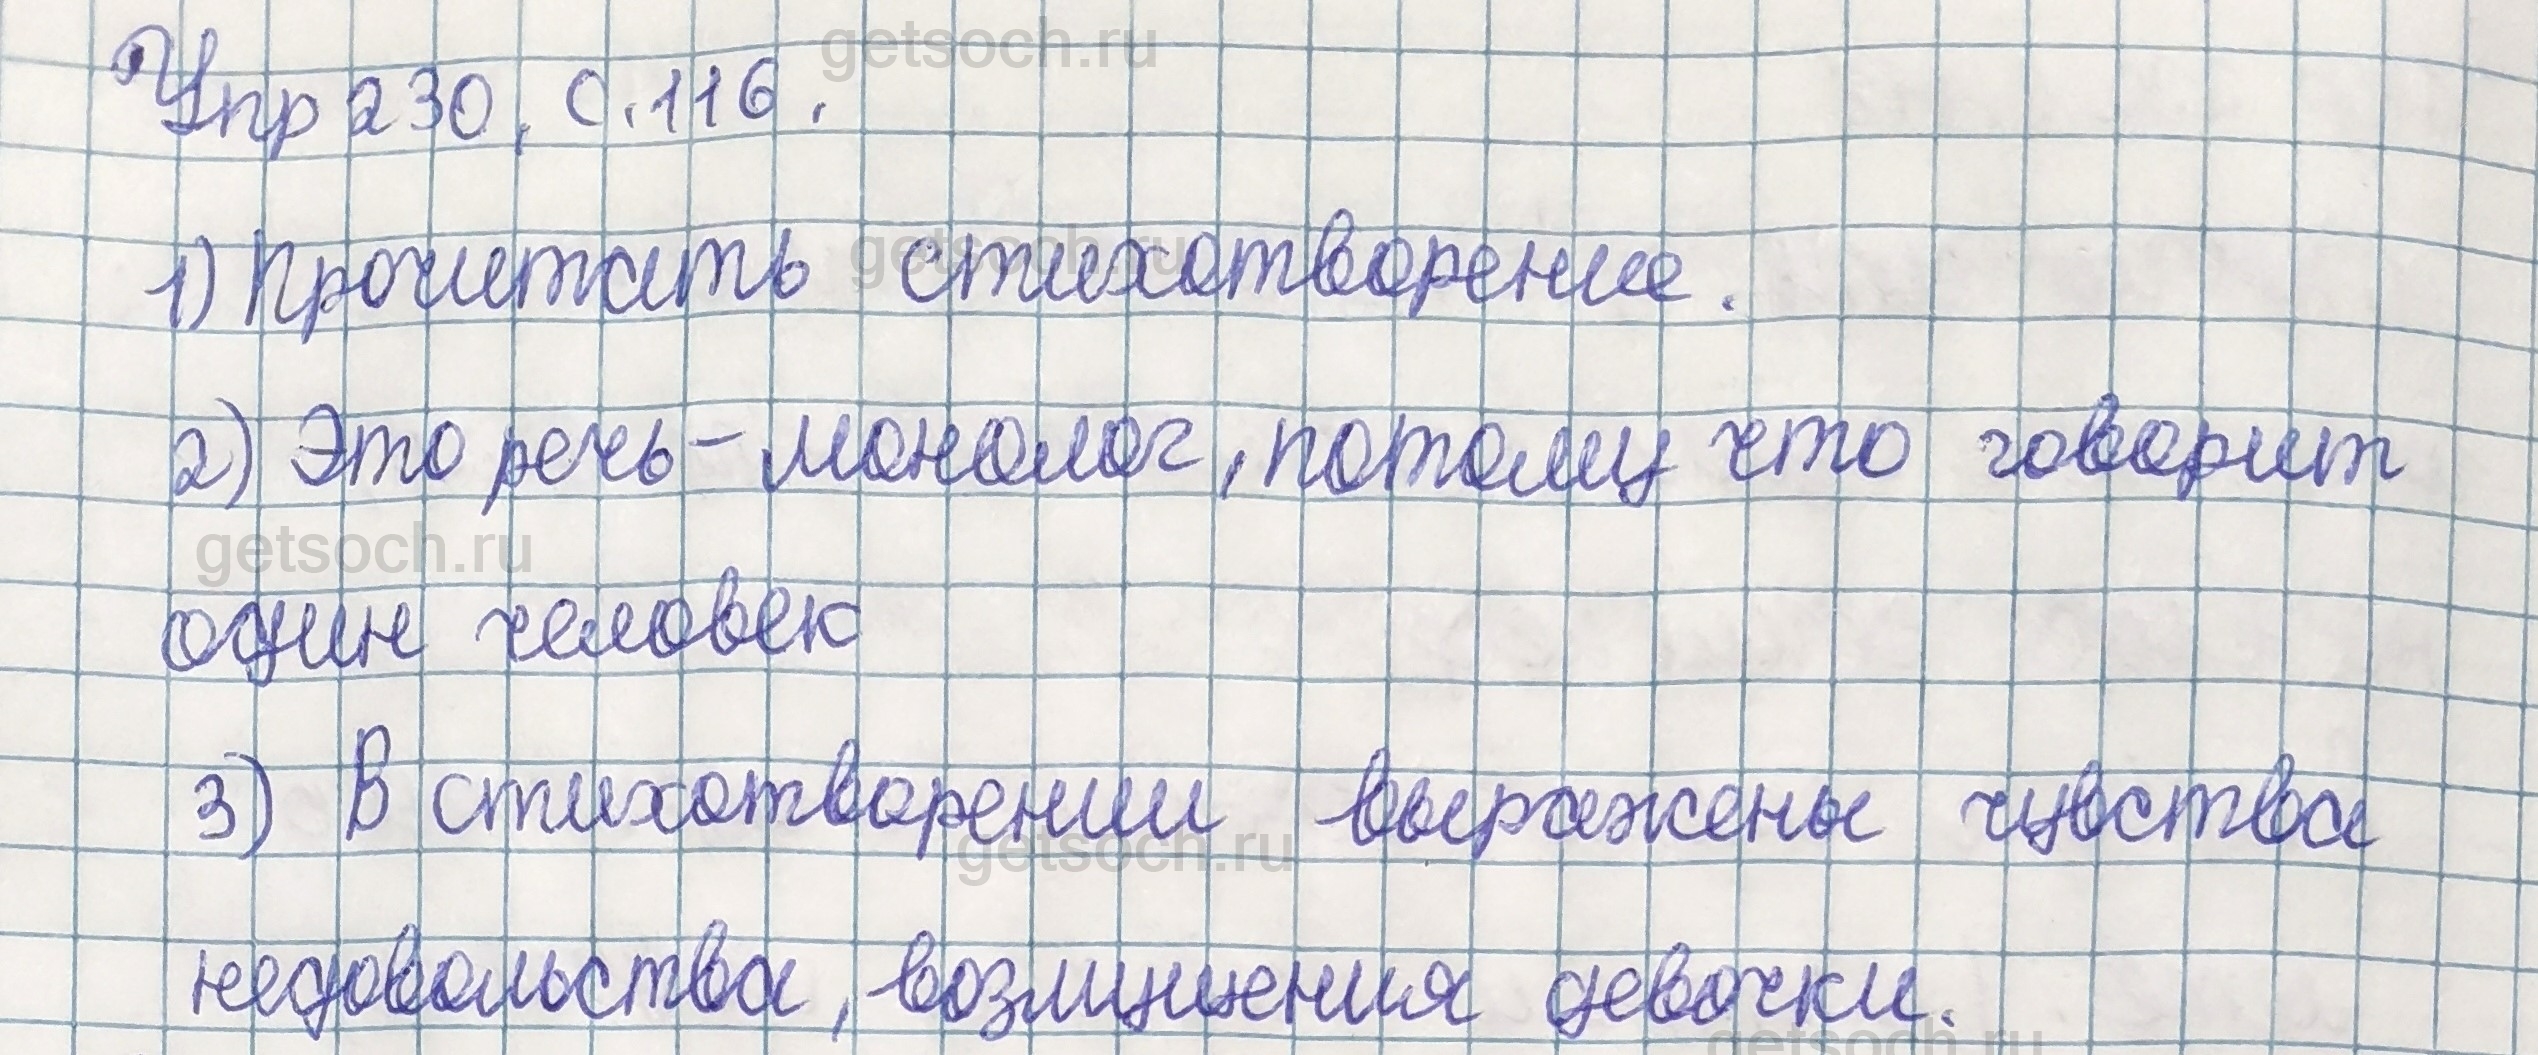 getsoch.ru
Упр 230, с. 116.
1) Прочитать стихотворение.
getsoch.ru
2) Это речь - монолог, потому что говорит
getsoch.ru
один человек
3) В стихотворении выражены чувства
getsoch.ru
недовольства, возмущения девочки.
getsoch.ru